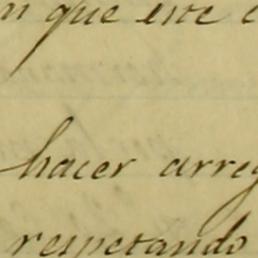 que este
hacer arreg
respetando